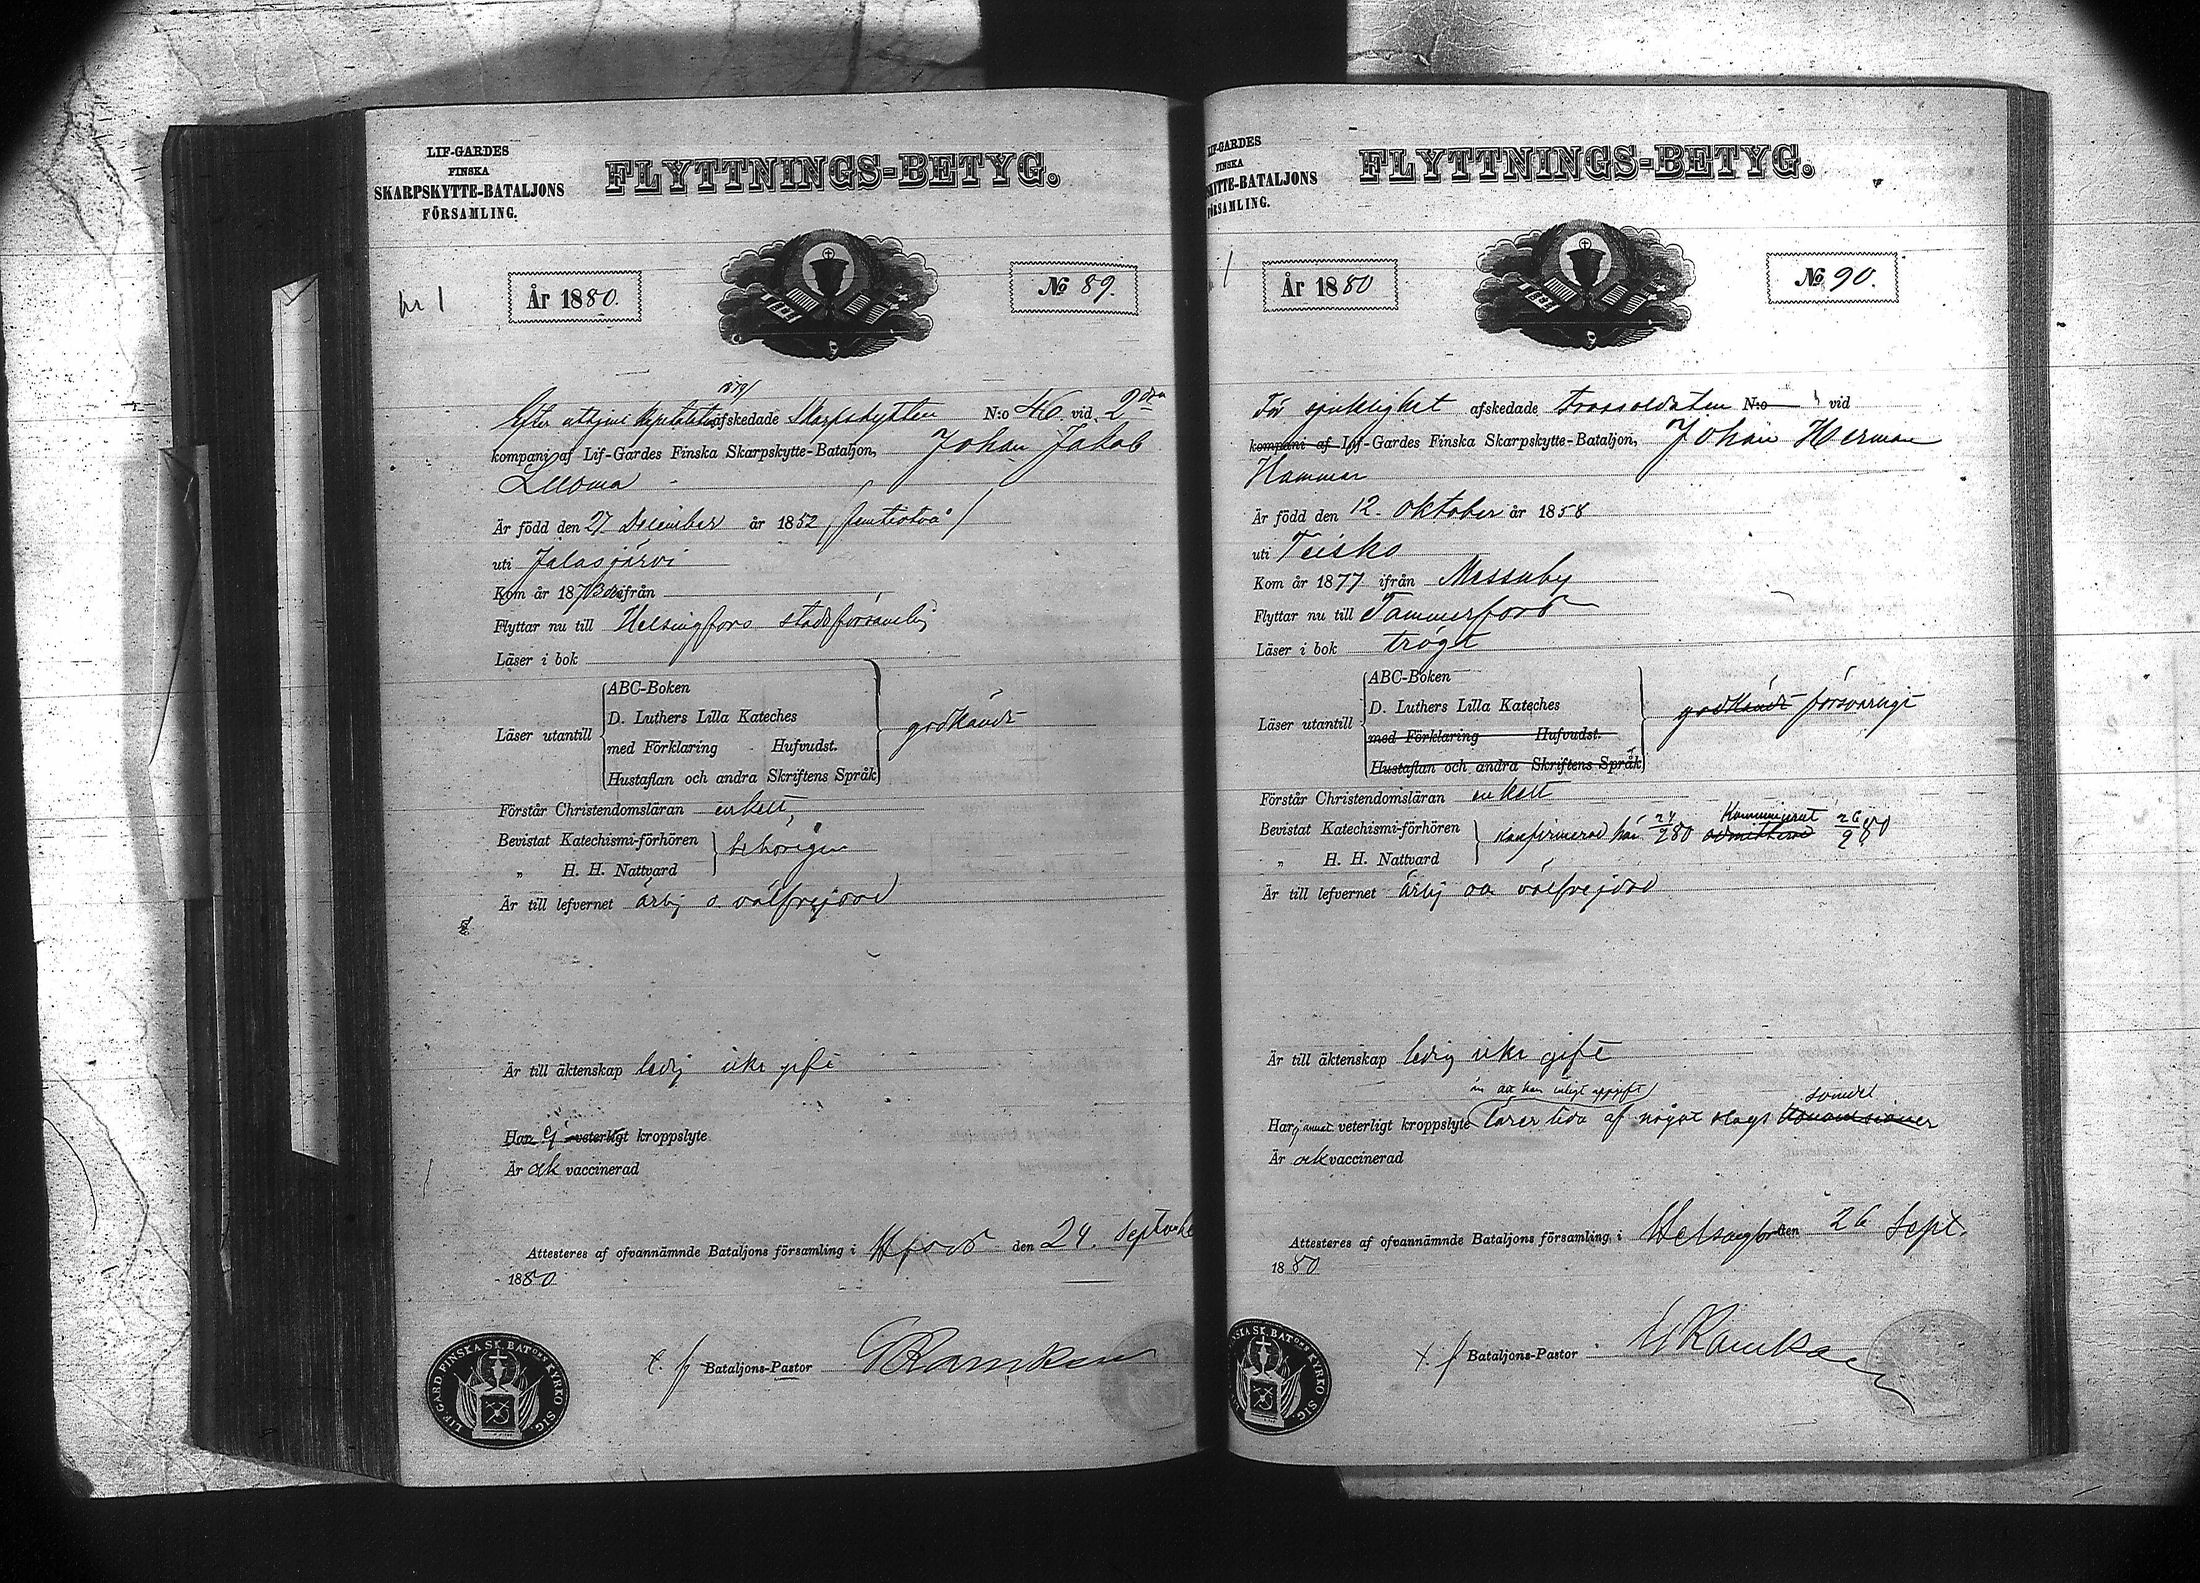 LIF-GARDES
FINSKA
SKARPSKYTTE-BATALJONS
FÖRSAMLING.
FLYTTNINGS-BETYG.
År 1880.
№ 89.
Efter utkjent afskedade Skarpskytten N:o 46 vid 2dra
kompani af Lif-Gardes Finska Skarpskytte-Bataljon, Johan Jakob
Luoma
Är född den 27 December år 1852 / femtiotvå /
uti Jalasjärvi
Kom år 187 ifrån
Flyttar nu till Helsingfors stadsförsamling
Läser i bok
Läser utantill
ABC-Boken
D. Luthers Lilla Kateches
med Förklaring Hufvudst.
Hustaflan och andra Skriftens Språk
godkändt
Förstår Christendomsläran enkelt,
Bevistat Katechismi-förhören
„ H. H. Nattvard
behörigen
Är till lefvernet ärlig o. välfrejdad
Är till äktenskap ledig icke gift
Har ej veterligt kroppslyte
Är ock vaccinerad
Attesteres af ofvannämnde Bataljons församling i Hfors den 24. September
1880
t. f. Bataljons-Pastor
LIF.GARD.FINSKA SK.BATONS KYRKO SIG.
LIF-GARDES
FINSKA
SKYTTE-BATALJONS
FÖRSAMLING.
FLYTTNINGS-BETYG.
År 1880
№ 90.
För sjuklighet afskedade trossoldaten N:o vid
kompani af Lif-Gardes Finska Skarpskytte-Bataljon, Johan Herman
Hammar
Är född den 12. Oktober år 1858
uti Teisko
Kom år 1877 ifrån Messuby
Flyttar nu till Tammerfors
Läser i bok trögt
Läser utantill
ABC-Boken
D. Luthers Lilla Kateches
med Förklaring Hufvudst.
Hustaflan och andra Skriftens Språk
godkändt försvarligt
Förstår Christendomsläran enkelt
Bevistat Katechismi-förhören
„ H. H. Nattvard
konfirmerad här 24/2 80 admitterad Kommunicerat 26/9 80
Är till lefvernet ärlig och välfrejdad
Är till äktenskap ledig icke gift
än att han enligt uppgift
Har ej annat veterligt kroppslyte lärer lida af något slags
Är ock vaccinerad
Attesteres af ofvannämnde Bataljons församling i Helsingfors den 26 Sept.
1880
t. f. Bataljons-Pastor
FINSKA SK.BATONS KYRKO SIG.